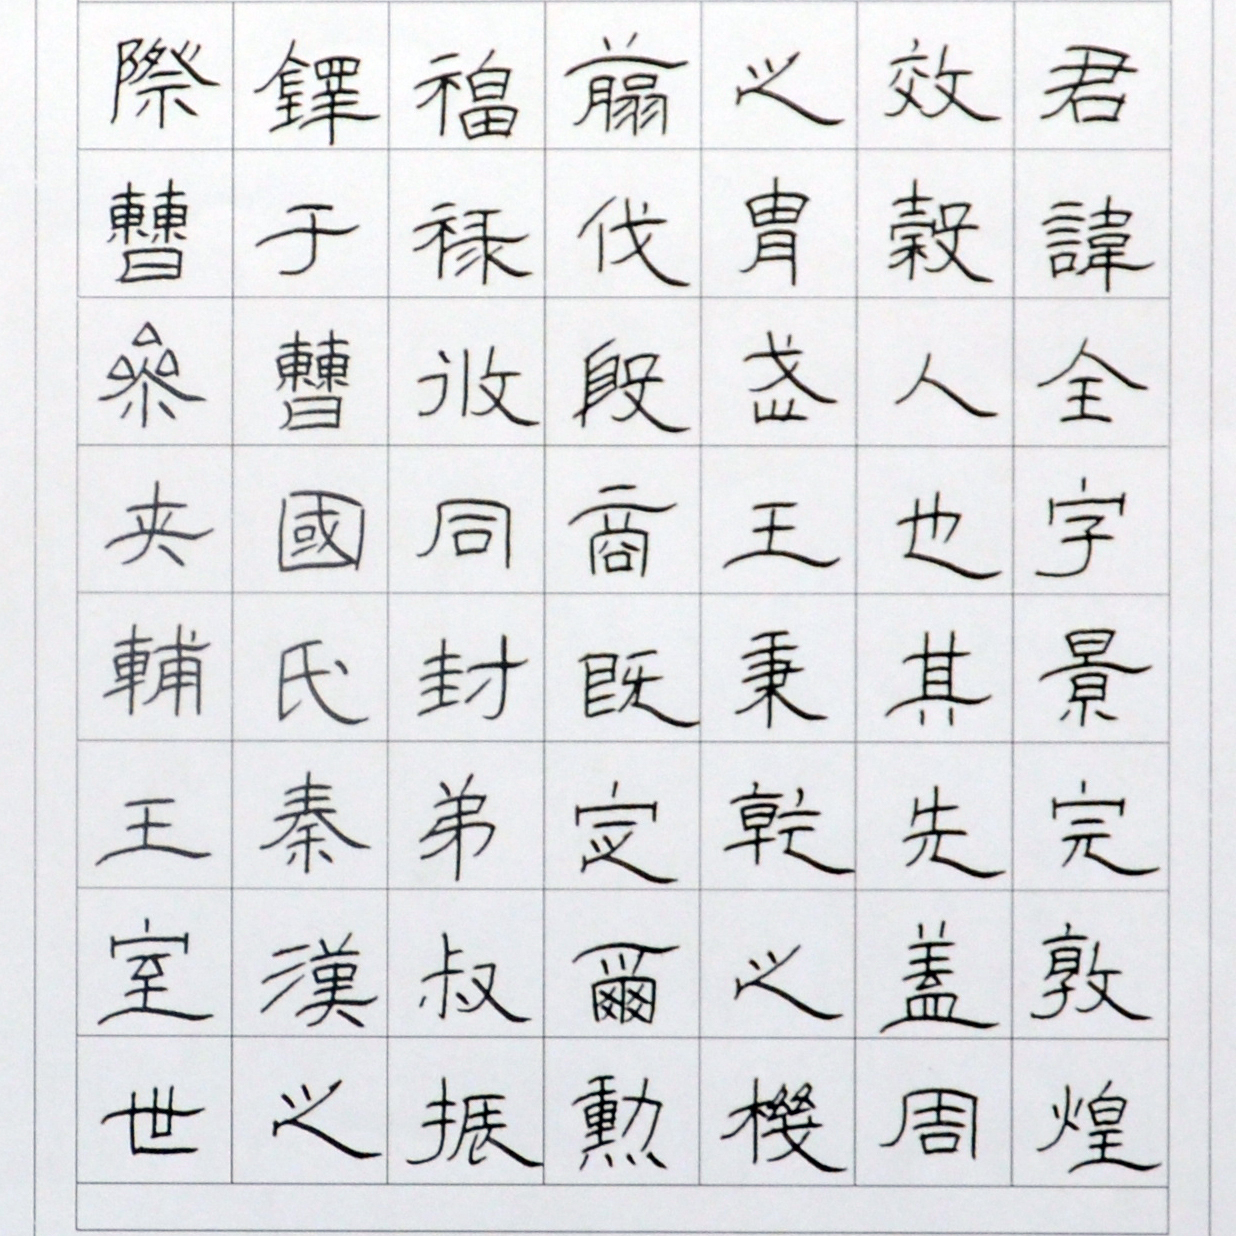 君諱全字景完敦煌
效穀人也其先盖周
之胄武王秉乾之機
翦伐殷商既定爾勳
福祿攸同封弟叔振
鐸于曹國氏秦漢之
際曹參夾輔王室世